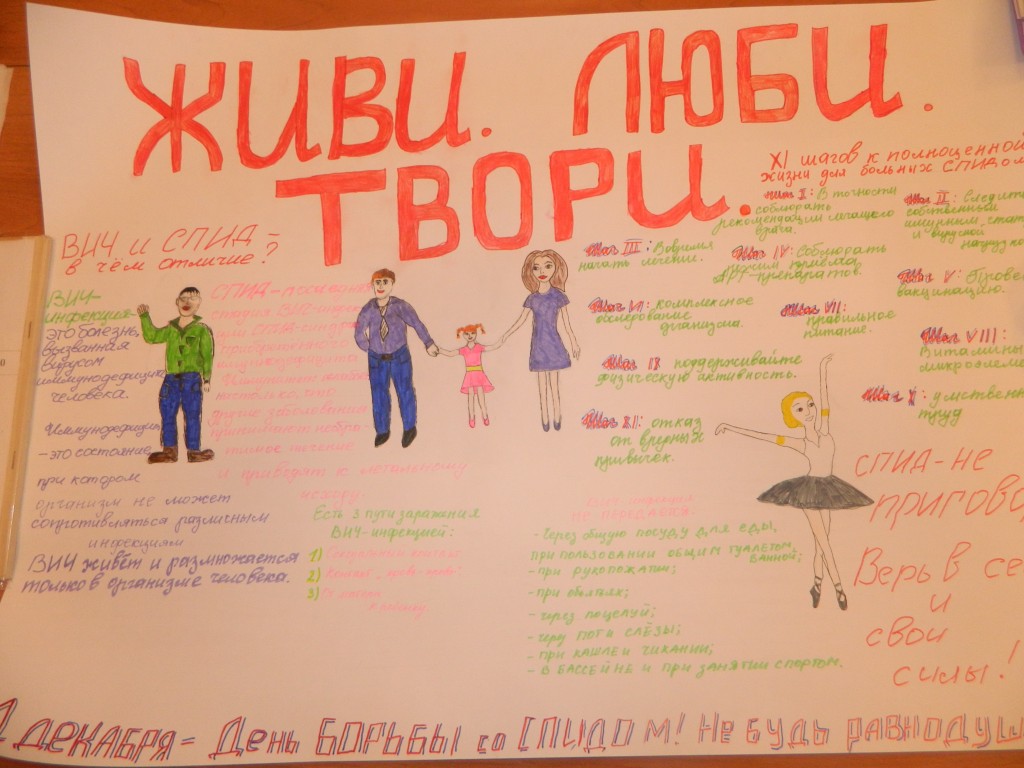 ЖИВИ. ЛЮБИ.
ТВОРИ.
XI шагов к полноценной
жизни для больных СПИДом
Шаг I: В точности
соблюдать
рекомендации лечащего
врача.
Шаг II: следить
собственным
имунным, стат
и вирусной
нагрузкой
Шаг III: Вовремя
начать лечение.
Шаг IV: Соблюдать
режим приёма
АРТ-препаратов
Шаг V: Прове
вакцинацию.
Шаг VI: комплексное
обследование
организма.
Шаг VII:
правильное
питание.
Шаг VIII:
Витамины
микроэлеме
Шаг IX поддерживайте
физическую активность.
Шаг X: умственн
труд
Шаг XI: отказ
от вредных
привычек.
ВИЧ и СПИД -
в чём отличие?
ВИЧ-
инфекция-
это болезнь,
вызванная
вирусом
иммунодефицита
человека.
Иммунодефицит
-это состояние,
при котором
организм не может
сопротивляться различным
инфекциям
ВИЧ живёт и размножается
только в организме человека.
СПИД-последняя
стадия ВИЧ-инфек
ции СПИД-синдром
приобретенного
иммунодефицита
другие заболевания
и приведет к летальному
исходу.
Есть 3 пути заражения
ВИЧ-инфекцией:
1)
2) Контакт "кровь-кровь"
3) От матери
к ребёнку
не передаётся:
- Через общую посуду для еды,
при пользовании общим туалетом,
ванной;
- при рукопожатии;
- при объятиях;
- через поцелуй;
- через пот и слёзы;
- при кашле и чихании;
- в бассейне и при занятии спортом.
СПИД-не
приговор
Верь в се
и
свои
силы!
1 ДЕКАБРЯ = День БОРЬБЫ со СПИДОМ! Не будь равнодуш